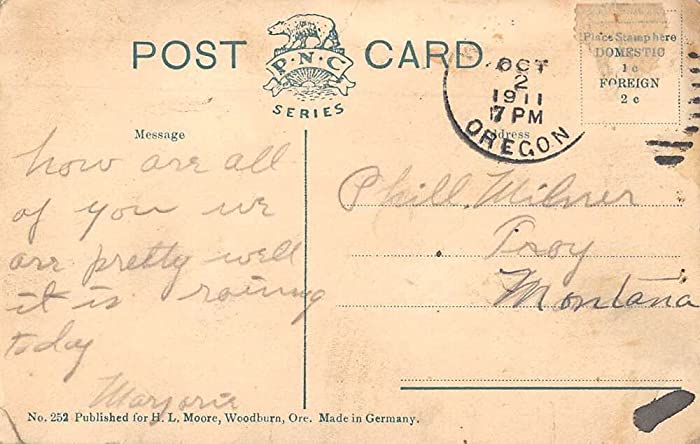 POST CARD
P·N·C
SERIES
Place Stamp here
DOMESTIC
1c
FOREIGN
2c
OCT
2
1911
7 PM
OREGON
Message
Address
how are all
of you we
are pretty well
it is raining
today
Marjorie
Phill. Milner
Troy
Montana
No. 252 Published for H. L. Moore, Woodburn, Ore. Made in Germany.